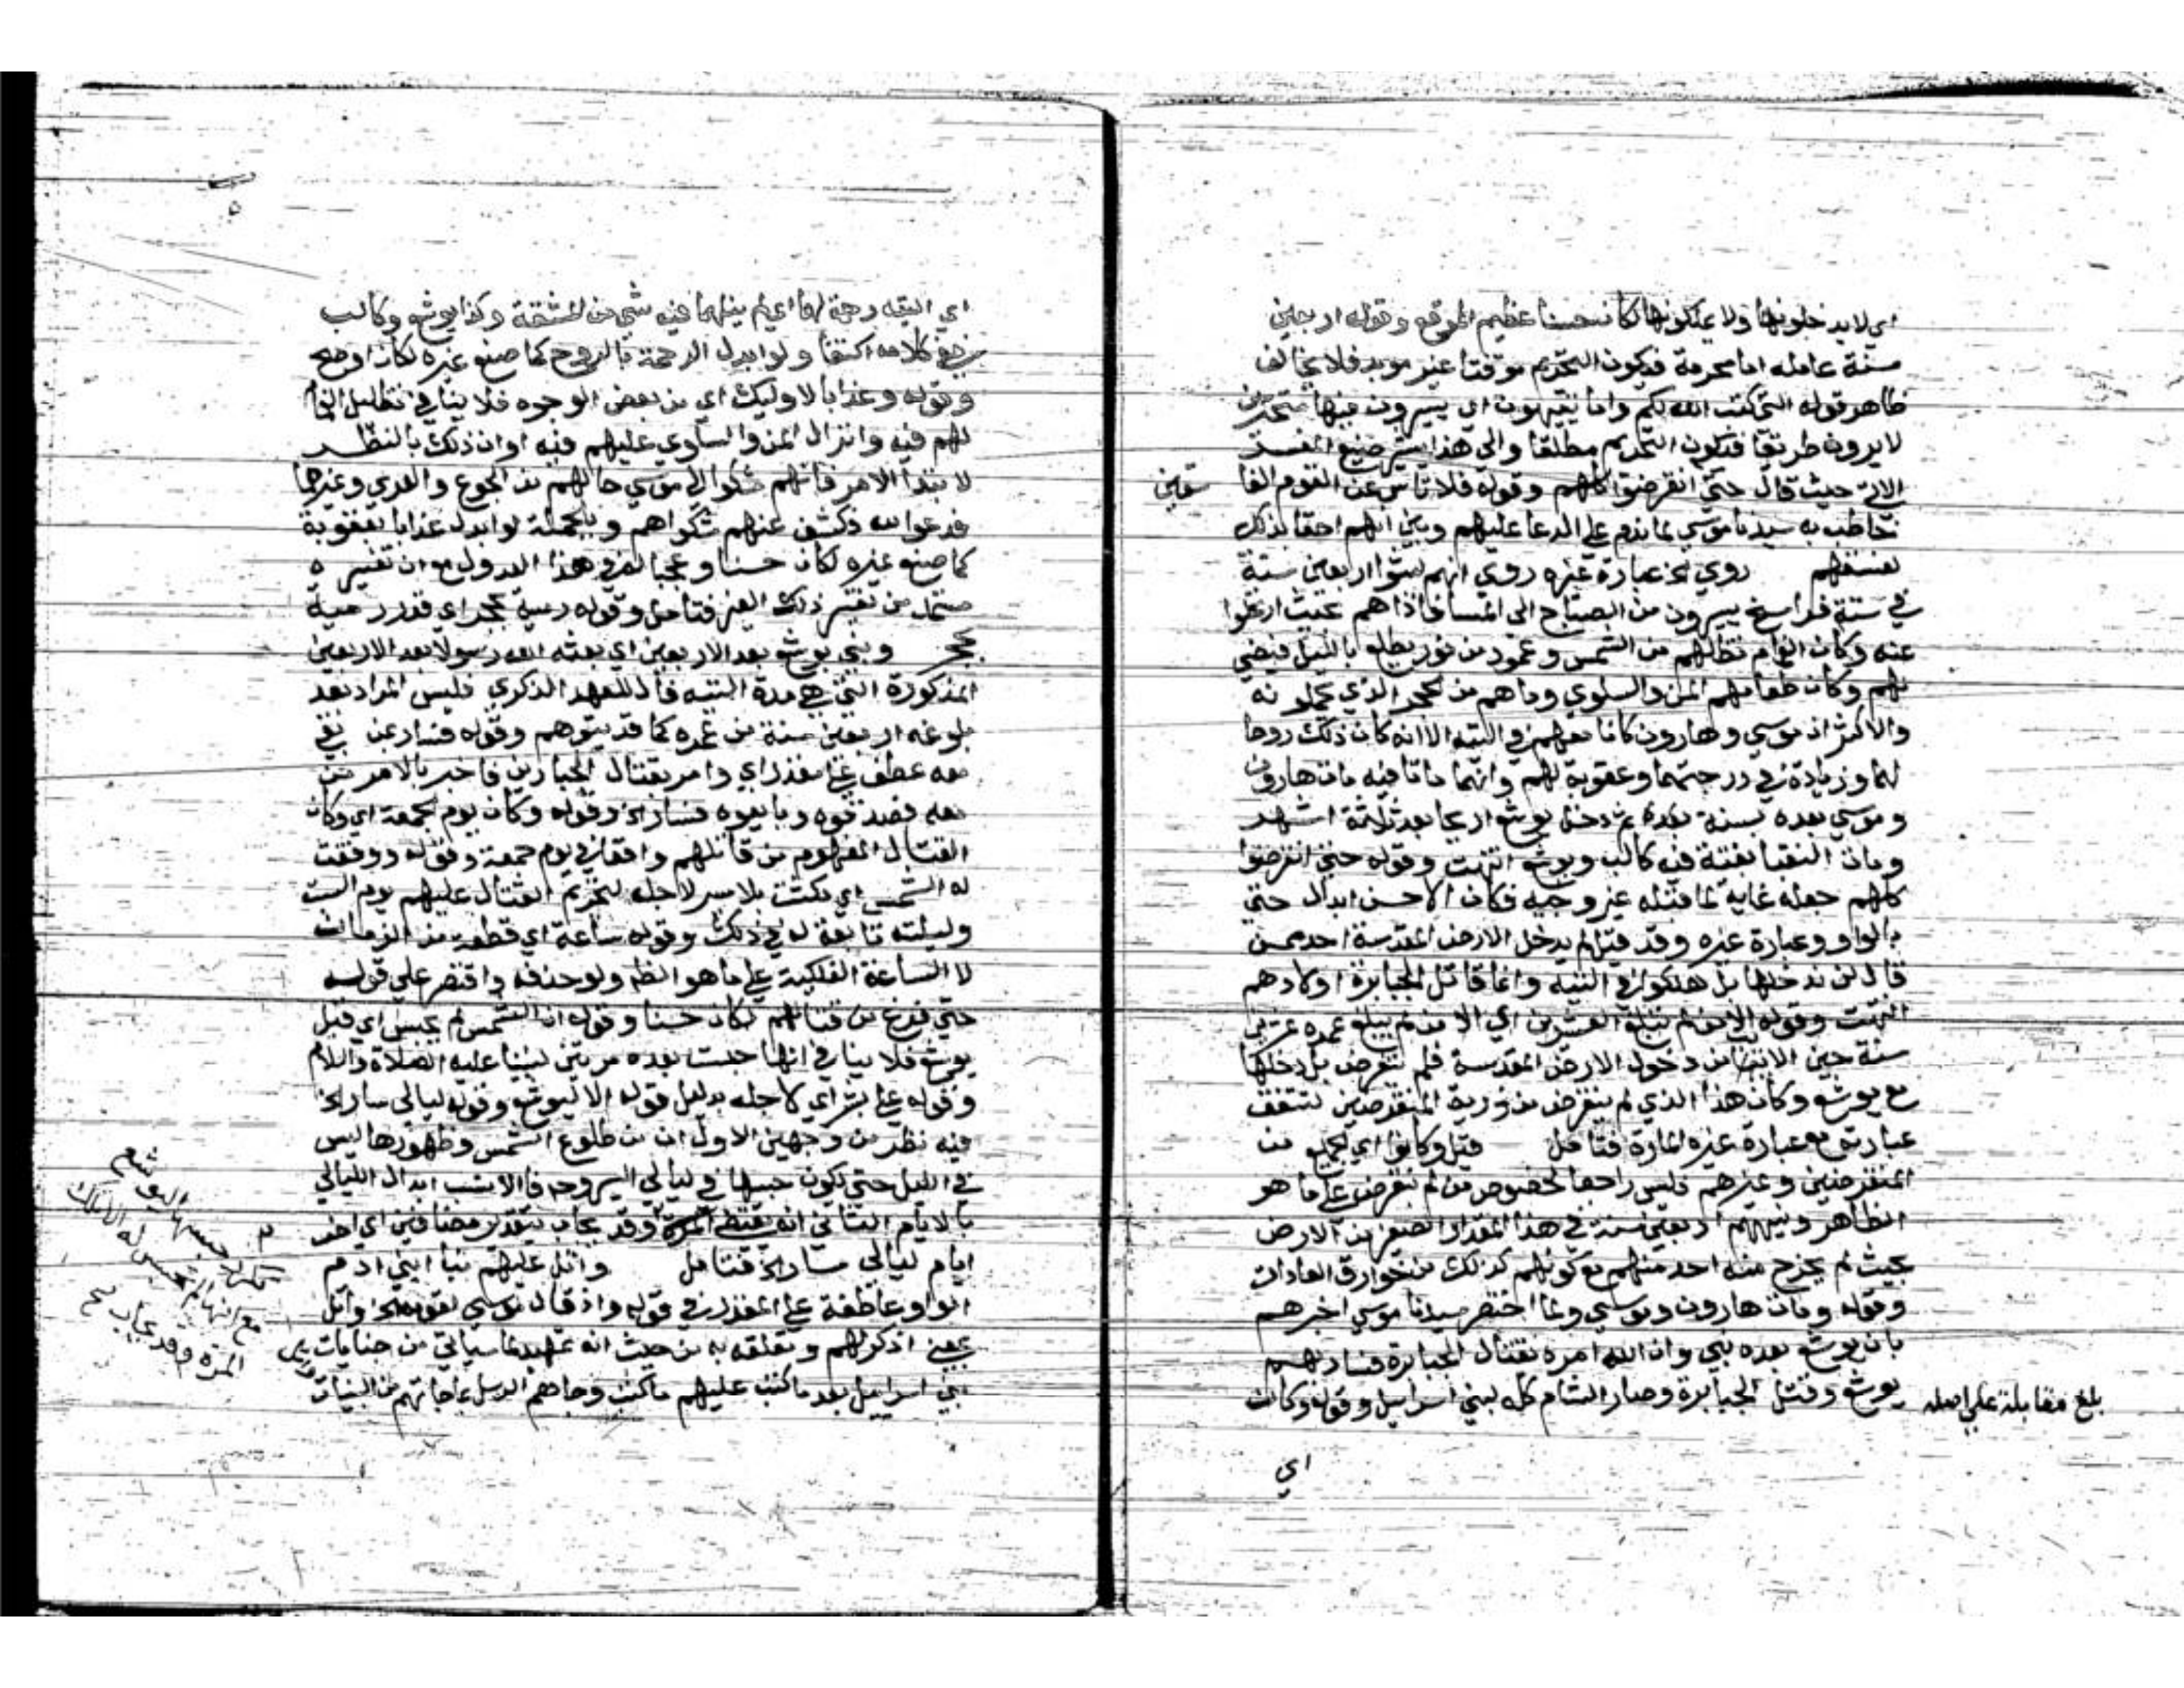 اي لا يدخلونها ولا يملكونها لكان حسنا عظيم الموقع وقوله اربعين
سنة عامله اما محرمة فيكون التحريم موقتا غير موبد فلا يخالف
ظاهر قوله التي كتب الله لكم واما يتيهون اي يسيرون فيها متحيرين
لا يرون طريقا فيكون التحريم مطلقا والى هذا يشير صنيع المفسر
الاتي حيث قال حتى انقرضوا كلهم وقوله فلا تاس على القوم الفا
سقين
خاطب به سيدنا موسي لما ندم على الدعا عليهم وبين انهم احقا بذلك
لفسقهم روي الخ عبارة غيره روي انهم لبثوا اربعين سنة
في ستة فراسخ يسيرون من الصباح الى المسا فاذا هم بحيث ارتحلوا
عنه وكان الغمام تظللهم من الشمس وعمود من نور يطلع بالليل فيضي
لهم وكان طعامهم المن والسلوي وماهم من الحجر الذي يحملونه
والاكثر ان موسي وهارون كانا معهم في التيه الا انه كان ذلك روحا
لهما وزيادة في درجتهما وعقوبة لهم وانهما ماتا فيه مات هارون
وموسي بعده بسنة ثم دخل يوشع اريحا بعد ثلثة اشهر
ومات النقبا بغتة غير كالب ويوشع انتهت وقوله حتى انقرضوا
كلهم جعله غاية لما قبله غير وجيه فكان الاحسن ابدال حتى
بالواو وعبارة غيره وقد قيل لم يدخل الارض المقدسة احد ممن
قال لن ندخلها بل هلكوا في التيه وانما قاتل الجبابرة اولادهم
انتهت وقوله الا من لم يبلغ العشرين اي الا من لم يبلغ عمره عشرين
سنة حين الامتناع من دخول الارض المقدسة فلم ينقرض بل دخلها
مع يوشع وكان هذا الذي لم ينقرض من ذرية المنقرضين لتتفق
عبارته مع عبارة غيره المارة فتامل قيل وكانوا اي الجميع من
المنقرضين وغيرهم فليس راجعا لخصوص من لم ينقرض على ما هو
الظاهر وتيههم اربعين سنة في هذا المقدار الصغير من الارض
بحيث لم يخرج منه احد منهم مع كونهم كذلك من خوارق العادات
وقوله ومات هارون وموسي ولما احتضر سيدنا موسي اخبرهم
بان يوشع بعده نبي وان الله امره بقتال الجبابرة فسار بهم
يوشع وقتل الجبابرة وصار الشام كله لبني اسراييل وقوله وكان
بلغ مقابلة على اصله
اي
اي التيه رحمة لهما اي لم ينلهما فيه شي من المشقة وكذا يوشع وكالب
ففي كلامه اكتفا ولو ابدل الرحمة بالروح كما صنع غيره لكان اوضح
وقوله وعذابا لاوليك اي من بعض الوجوه فلا ينافي تظليل الغمام
لهم فيه وانزال المن والسلوي عليهم فيه او ان ذلك بالنظر
لابتدا الامر فانهم شكوا الى موسي حالهم من الجوع والعري وغيرهما
فدعوا الله فكشف عنهم شكواهم وبالجملة لو ابدل عذابا بعقوبة
كما صنع غيره لكان حسنا وعجبا له في هذا العدول مع ان تفسيره
مستمد من تفسير ذلك الغير فتامل وقوله رمية بحجر اي قدر رمية
بحجر ونبي يوشع بعد الاربعين اي بعثه الله رسولا بعد الاربعين
المذكورة التي هي مدة التيه فال للعهد الذكري فليس المراد بعد
بلوغه اربعين سنة من عمره كما قد يتوهم وقوله فسار بمن بقي
معه عطف على مقدر اي وامر بقتال الجبارين فاخبر بالامر من
معه فصدقوه وبايعوه فسار الخ وقوله وكان يوم الجمعة اي وكان
القتال المفهوم من قاتلهم واقعا في يوم جمعة وقوله ووقفت
له الشمس اي مكثت بلا سير لاجله لتحريم القتال عليهم يوم السبت
وليلته تابعة له في ذلك وقوله ساعة اي قطعة من الزمان
لا الساعة الفلكية على ما هو الظ ولو حذفه واقتصر على قوله
حتى فرغ من قتالهم لكان حسنا وقوله ان الشمس لم تحبس اي قبل
يوشع فلا ينافي انها حبست بعده مرتين لنبينا عليه الصلاة والسلام
وقوله على بشر اي لاجله بدليل قوله الا ليوشع وقوله ليالي سار الخ
فيه نظر من وجهين الاول ان من طلوع الشمس وظهورها ليس
في الليل حتى تكون حبسها في ليالي السير وح فالانسب ابدال الليالي
بالايام الثاني انه يقتضي تكرر حبسها ليوشع
مع انها لم تحبس له الا تلك
المرة وقد يجاب بتقدير مضافين اي احد
ايام ليالي سار الخ فتامل واتل عليهم نبا ابني ادم
الواو عاطفة على المقدر في قوله واذ قال موسي لقومه الخ واتل
بمعنى اذكر لهم وتعلقه به من حيث انه تمهيد لما سياتي من جنايات
بني اسراييل بعد ما كتب عليهم ما كتب وجاهم الرسل بما جاتهم من البينات